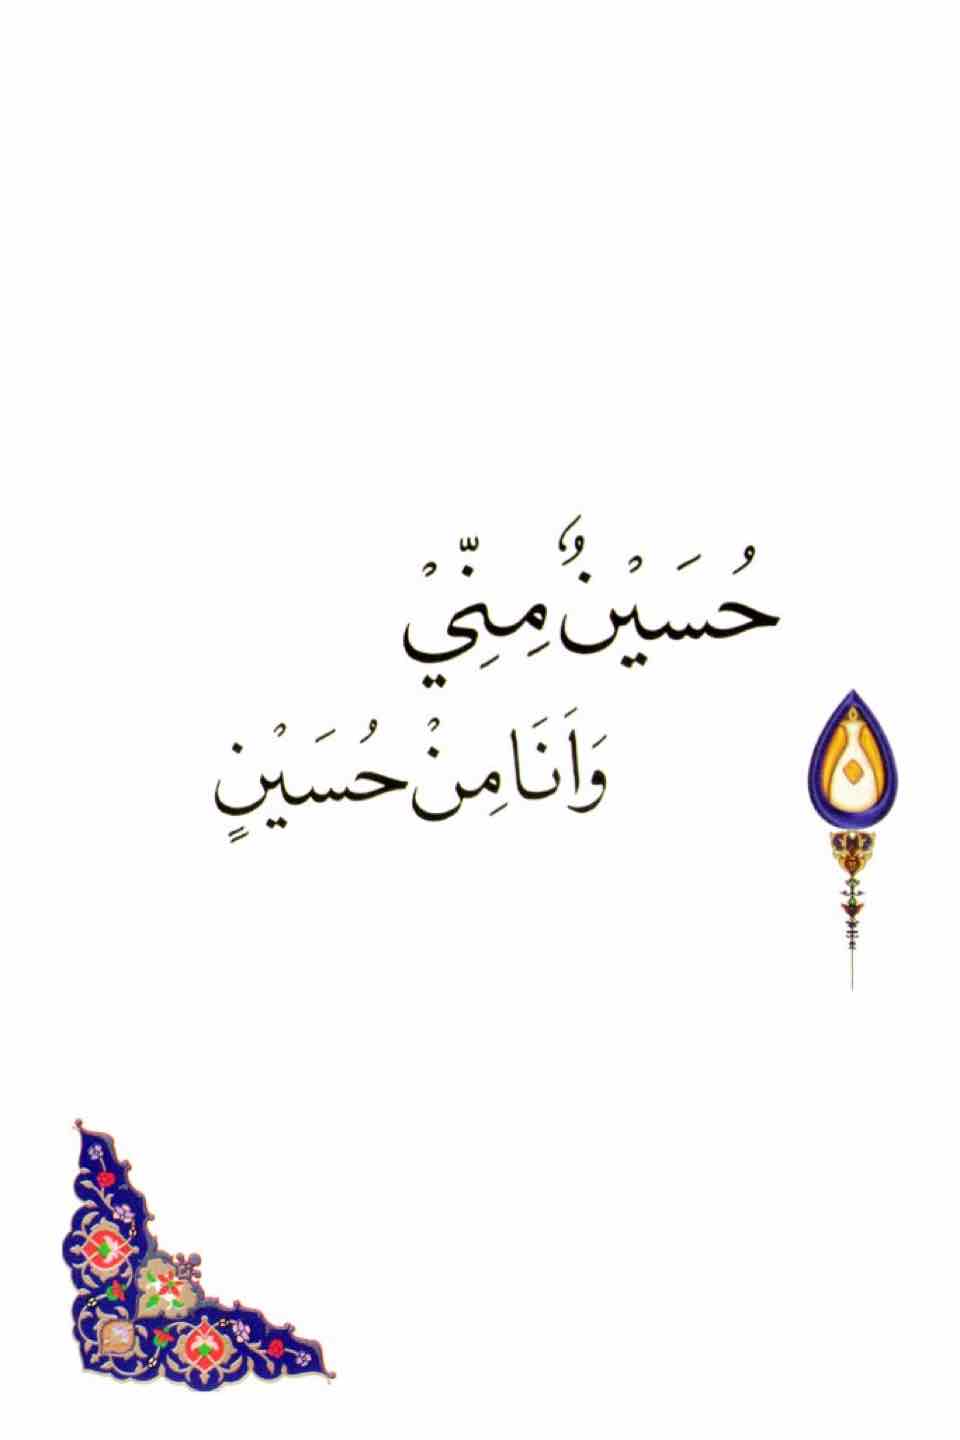 حُسَيْنٌ مِنِّيْ
وَاَنَا مِنْ حُسَيْنٍ